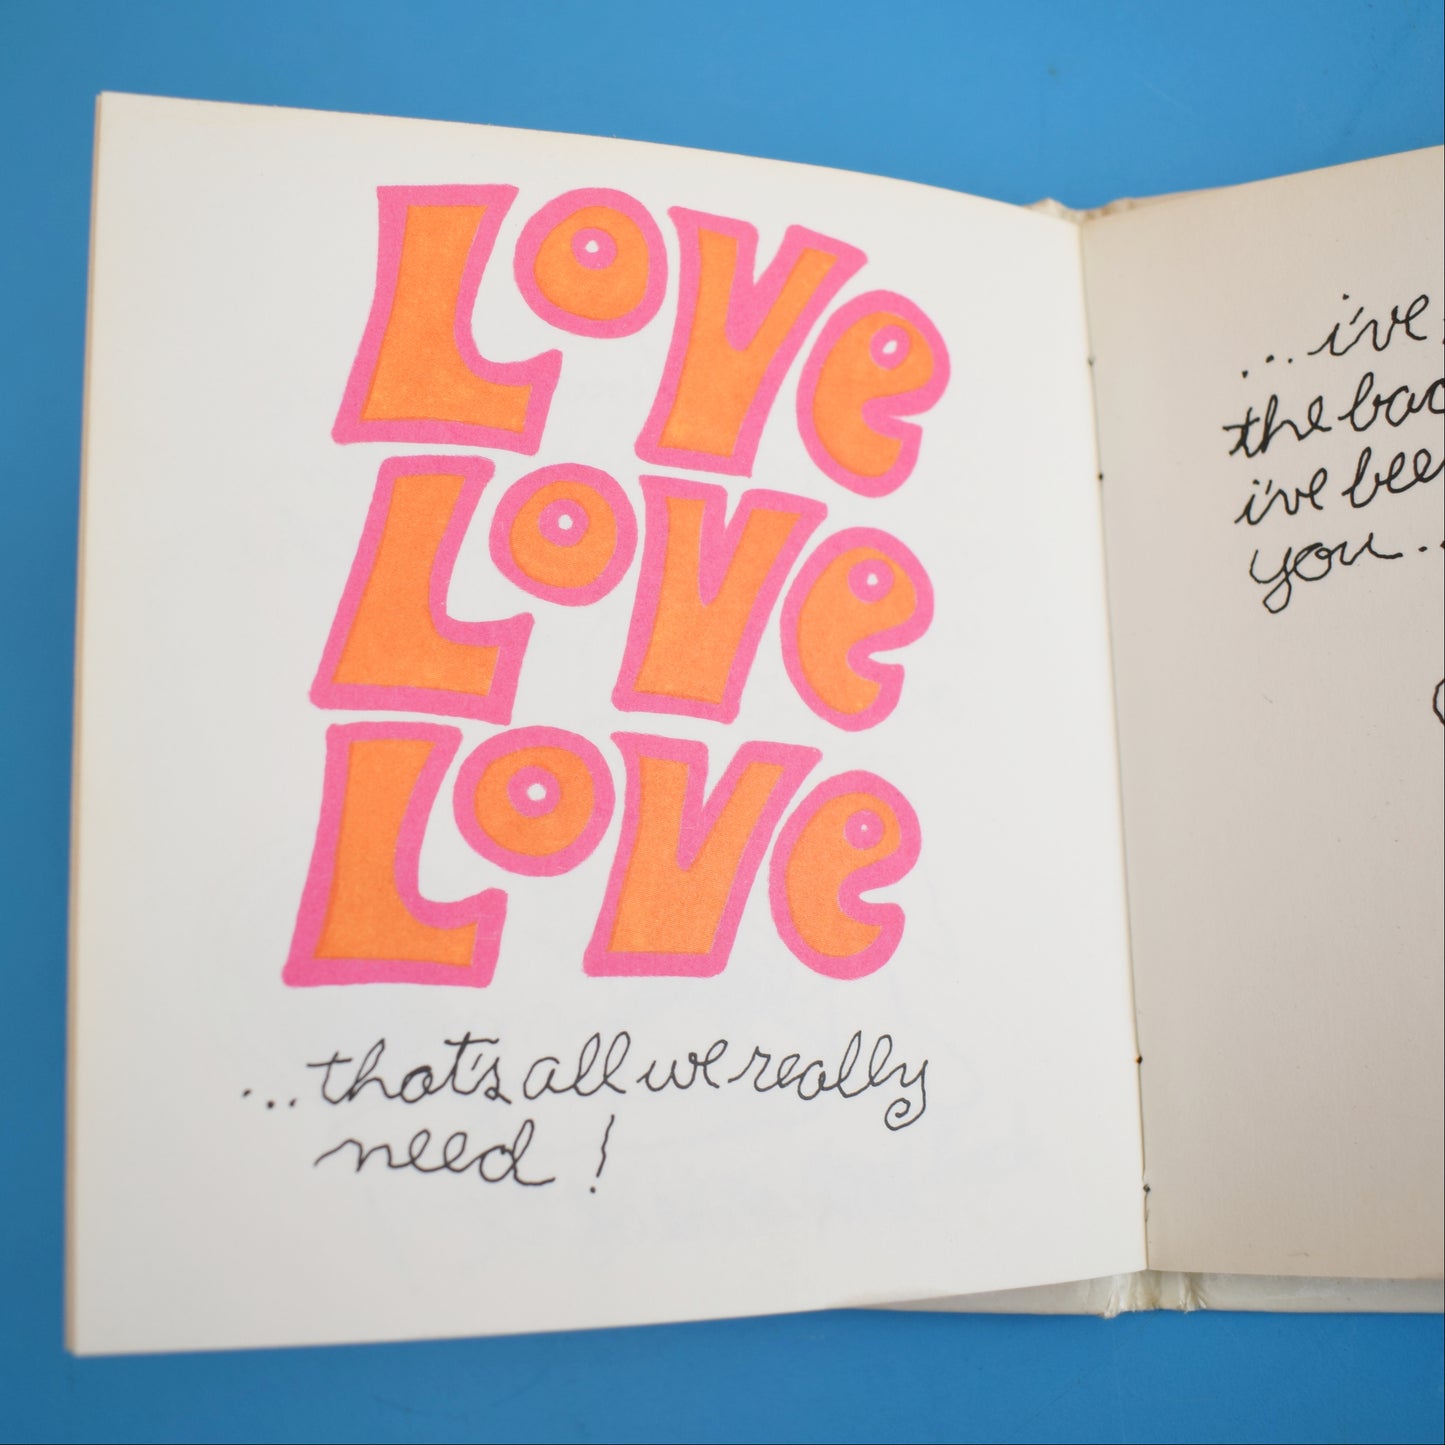 LOVe
LOVe
LOVe
...that's all we really
need!
...i've
the
i've
you...